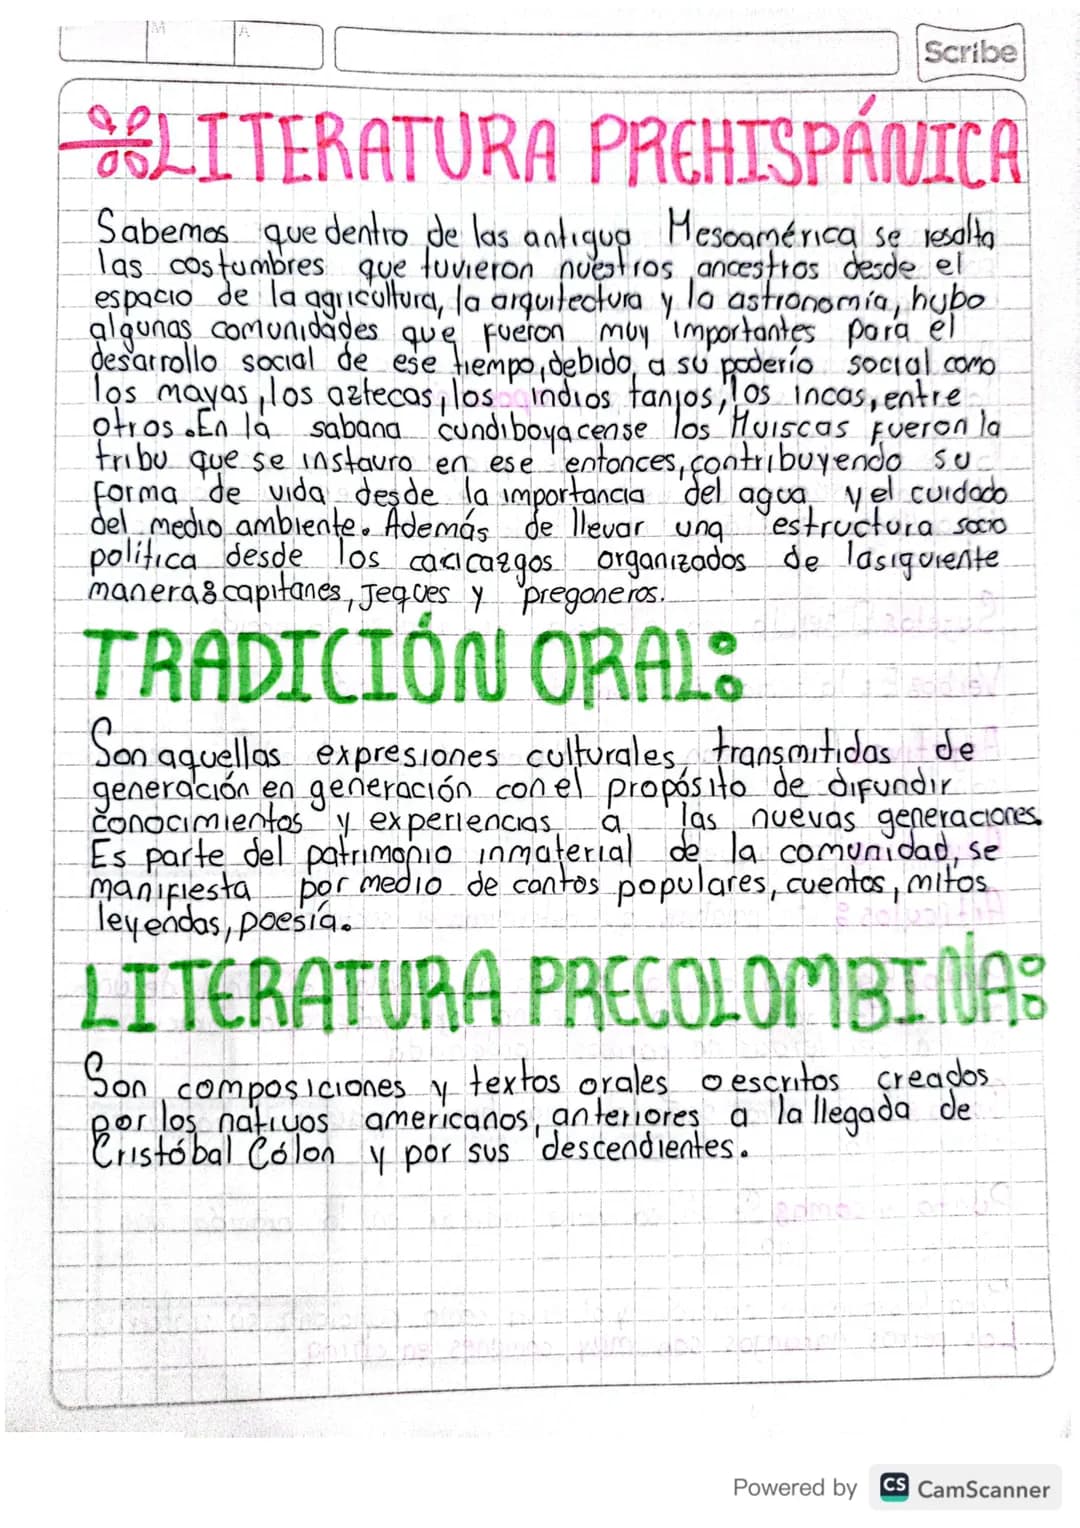 M A
Scribe
LITERATURA PREHISPÁNICA
Sabemos que dentro de las antigua Mesoamérica se resalta
las costumbres que tuvieron nuestros ancestros desde el
espacio de la agricultura, la arquitectura y la astronomía, hubo
algunas comunidades que fueron muy importantes para el
desarrollo social de ese tiempo, debido a su poderío social como
los mayas, los aztecas, los indios tanjos, los incas, entre
otros. En la sabana cundiboyacense los Muiscas fueron la
tribu que se instauro en ese entonces, contribuyendo su
forma de vida desde la importancia del agua y el cuidado
del medio ambiente. Además de llevar una estructura socio
política desde los cacicazgos organizados de la siguiente
manera: capitanes, Jeques y pregoneros.
TRADICIÓN ORAL:
Son aquellas expresiones culturales transmitidas de
generación en generación con el propósito de difundir
conocimientos y experiencias a las nuevas generaciones.
Es parte del patrimonio inmaterial de la comunidad, se
manifiesta por medio de cantos populares, cuentos, mitos
leyendas, poesía.
LITERATURA PRECOLOMBINA:
Son composiciones y textos orales o escritos creados
por los nativos americanos, anteriores a la llegada de
Cristóbal Cólon y por sus descendientes.
Powered by CS CamScanner